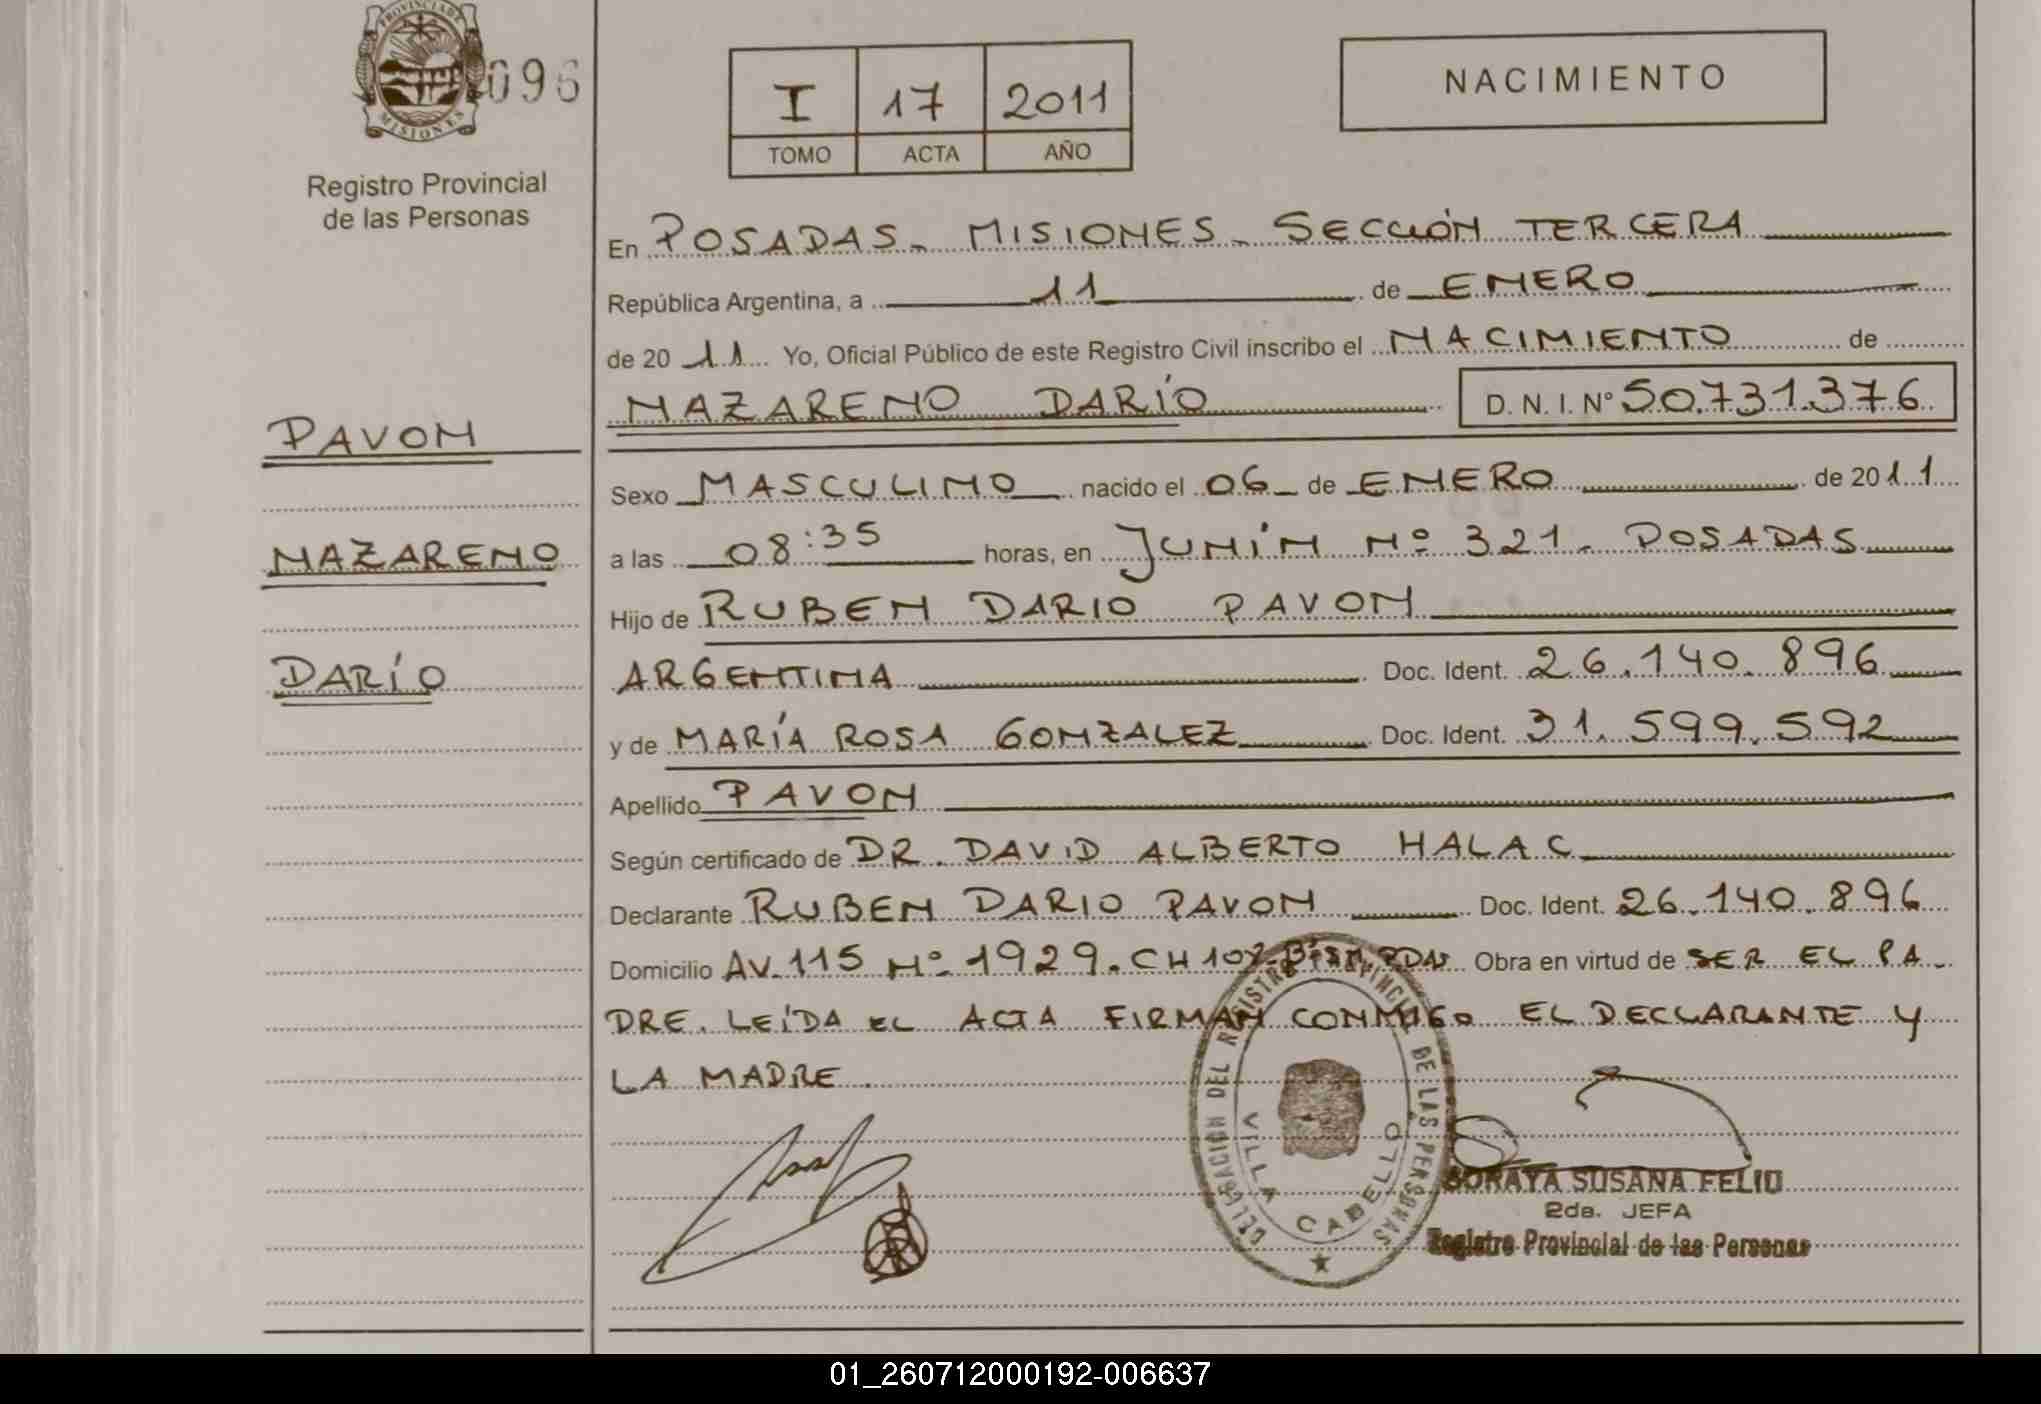 PROVINCIA DE
MISIONES
096
Registro Provincial
de las Personas
I 17 2011
TOMO ACTA AÑO
NACIMIENTO
En POSADAS - MISIONES - SECCIÓN TERCERA
República Argentina, a 11 de ENERO
de 2011 Yo, Oficial Público de este Registro Civil inscribo el NACIMIENTO de
NAZARENO DARÍO D. N. I. Nº 50.731.376
PAVON
Sexo MASCULINO nacido el 06 de ENERO de 2011
NAZARENO
a las 08:35 horas, en JUNÍN Nº 321. POSADAS
Hijo de RUBEN DARIO PAVON
DARÍO
ARGENTINA Doc. Ident. 26.140.896
y de MARÍA ROSA GONZALEZ Doc. Ident. 31.599.592
Apellido PAVON
Según certificado de DR. DAVID ALBERTO HALAC
Declarante RUBEN DARIO PAVON Doc. Ident. 26.140.896
Domicilio AV. 115 Nº 1929. CH Obra en virtud de SER EL PA-
DRE. LEÍDA EL ACTA FIRMAN CONMIGO EL DECLARANTE Y
LA MADRE.
DELEGACION DEL REGISTRO PROVINCIAL DE LAS PERSONAS
VILLA CABELLO
SORAYA SUSANA FELIU
2da. JEFA
Registro Provincial de las Personas
01_260712000192-006637